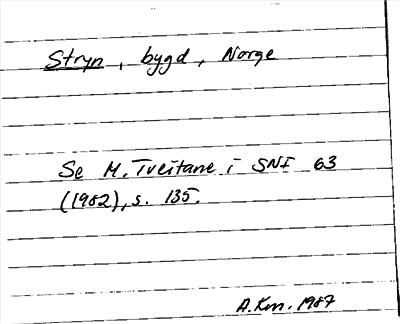 Stryn, bygd, Norge
Se M. Tveitane i SNF 63
(1982), s. 135.
A.Km. 1987